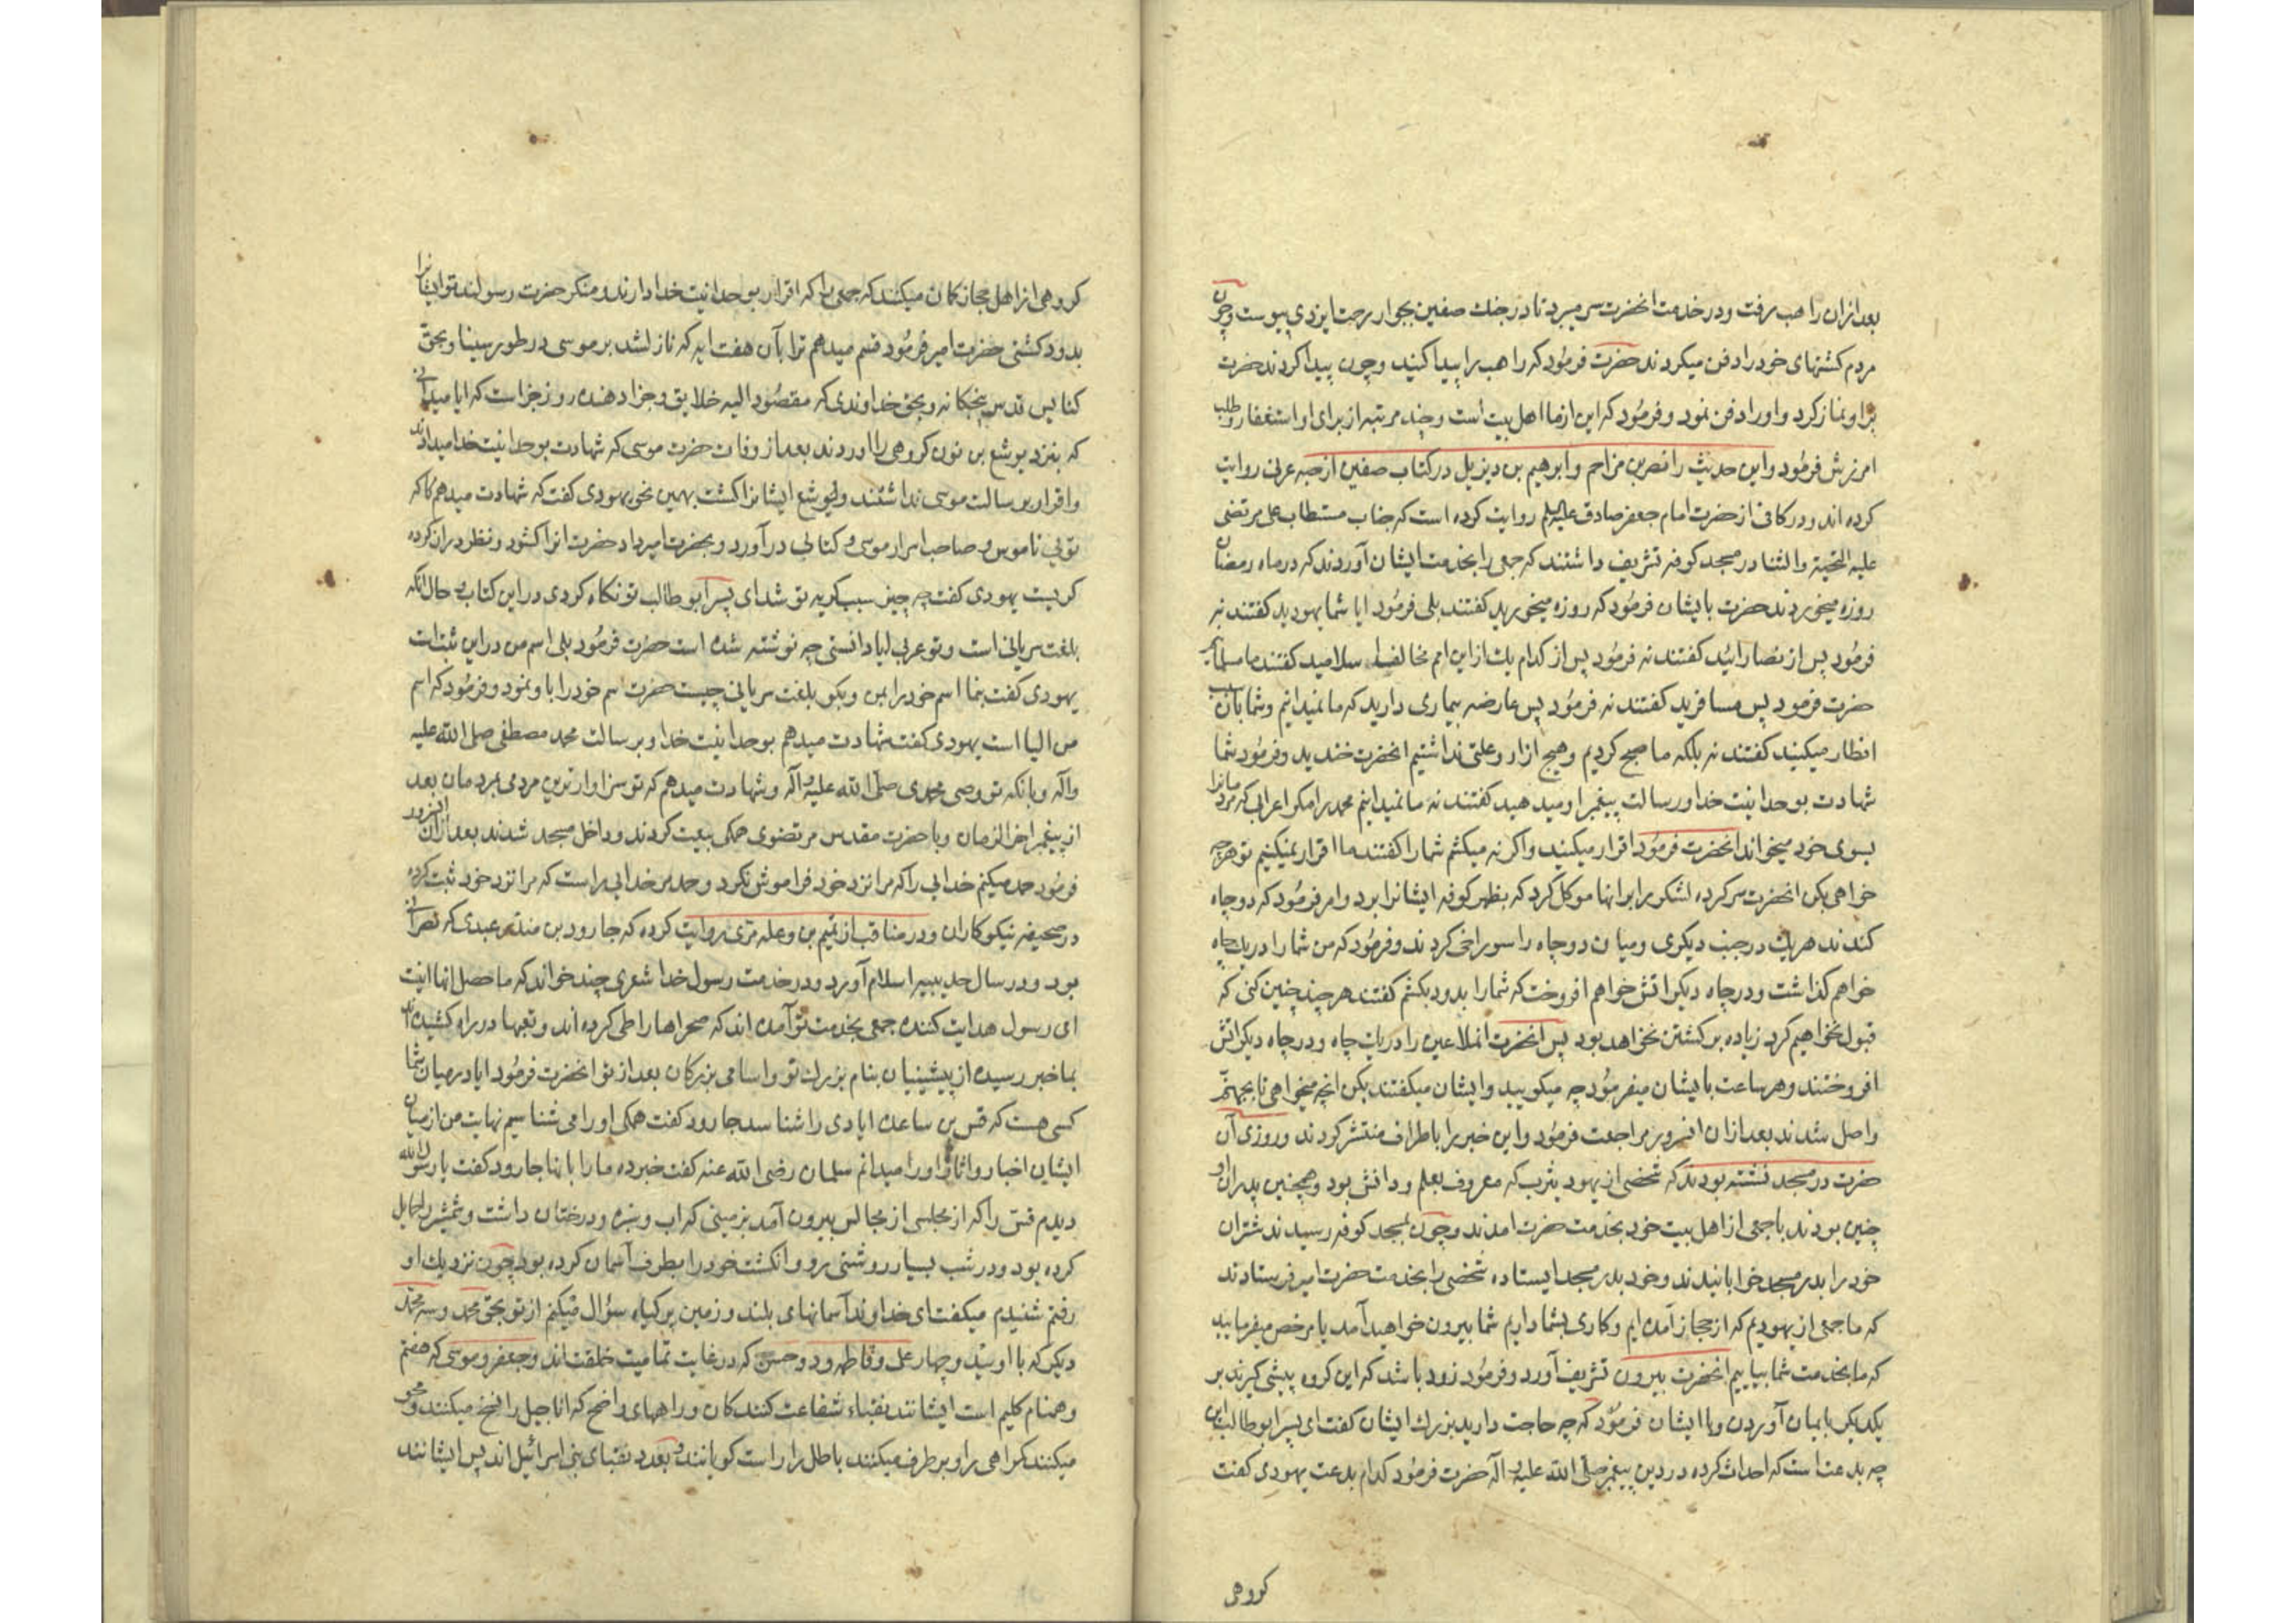 بعد ازان راهب برفت ودر خدمت انحضرت بسر میبرد تا در جنك صفین بجوار رحمت ایزدی پیوست وچون
مردم کشتهای خود را دفن میکردند حضرت فرمود که راهب را پیدا کنید وچون پیدا کردند حضرت
براو نماز کرد واورا دفن نمود وفرمود که این ازما اهل بیت است وچند مرتبه از برای او استغفار وطلب
امرزش فرمود واین حدیث را نصربن مزاحم وابرهیم بن دیزیل درکتاب صفین از حبه عرنی روایت
کرده اند ودر کافی از حضرت امام جعفر صادق علیه السلم روایت کرده است که جناب مستطاب علی مرتضی
علیه التحیة والثنا در مسجد کوفه تشریف داشتند که جمعی را بخدمت ایشان آوردند که در ماه رمضان
روزه میخوردند حضرت بایشان فرمود که روزه میخورید کفتند بلی فرمود ایا شما یهودید کفتند نه
فرمود پس از نصارائید کفتند نه فرمود پس از کدام یك از این امم مخالف اسلامید کفتند ما مسلمانیم
حضرت فرمود پس مسافرید کفتند نه فرمود پس عارضه بیماری دارید که ما نمیدانیم وشما بان سبب
افطار میکنید کفتند نه بلکه ما صبح کردیم وهیچ ازار وعلتی نداشتیم انحضرت خندید وفرمود شما
شهادت بوحدانیت خدا ورسالت پیغمبر او میدهید کفتند نه ما نمیدانیم محمد را مکر اعرابی که مردمانرا
بسوی خود میخواند انحضرت فرمود اقرار میکنید واکرنه میکشم شما را کفتند ما اقرار نمیکنیم تو هرچه
خواهی بکن انحضرت سر کرده لشکر را برانها موکل کرد که بظهر کوفه ایشانرا برد وامر فرمود که دو چاه
کندند هریك در جنب دیکری ومیان دو چاه را سوراخی کردند وفرمود که من شما را در یك چاه
خواهم کذاشت ودر چاه دیکر اتش خواهم افروخت که شما را بدود بکشم کفتند هرچند چنین کنی که
قبول نخواهیم کرد زیاده بر کشتن نخواهد بود پس انحضرت انملاعین را در یك چاه ودر چاه دیکر اتش
افروختند وهر ساعت بایشان میفرمود چه میکویید وایشان میکفتند بکن انچه میخواهی تا بجهنم
واصل شدند بعد ازان انسرور مراجعت فرمود واین خبر را باطراف منتشر کردند وروزی آن
حضرت در مسجد نشسته بودند که شخصی از یهود یثرب که معروف بعلم ودانش بود وهمچنین پدران او
چنین بودند با جمعی از اهل بیت خود بخدمت حضرت امدند وچون بمسجد کوفه رسیدند شتران
خود را بدر مسجد خوابانیدند وخود بدر مسجد ایستاده شخصی را بخدمت حضرت امیر فرستادند
که ما جمعی از یهودیم که از حجاز آمده ایم وکاری بشما داریم شما بیرون خواهید آمد یا مرخص میفرمایید
که ما بخدمت شما بیاییم انحضرت بیرون تشریف آورد وفرمود زود باشد که این کروه پیشی کیرند بر
یکدیکر بایمان آوردن وبا ایشان فرمود که چه حاجت دارید بزرك ایشان کفت ای پسر ابوطالب این
چه بدعت است که احداث کرده در دین پیغمبر صلی الله علیه واله حضرت فرمود کدام بدعت یهودی کفت
کروهی
کروهی از اهل حجاز کمان میکنند که جمعی را که اقرار بوحدانیت خدا دارند ومنکر حضرت رسولند تو ایشانرا
بدود کشتی حضرت امیر فرمود قسم میدهم ترا بآن هفت ایه که نازل شد بر موسی در طور سینا وبحق
کنایس قدس پنجکانه وبحق خداوندی که مقصود الیه خلایق وجزا دهنده روز جزاست که ایا میدانی
که بنزد یوشع بن نون کروهی را اوردند بعد از وفات حضرت موسی که شهادت بوحدانیت خدا میدادند
واقرار برسالت موسی نداشتند ویوشع ایشانرا کشت بهمین نحو یهودی کفت که شهادت میدهم که
توئی ناموس وصاحب اسرار موسی وکتابی درآورد وبحضرت امیر داد حضرت انرا کشود ونظر دران کرده
کریست یهودی کفت چه چیز سبب کریه تو شد ای پسر ابوطالب تو نکاه کردی در این کتاب وحال انکه
بلغت سریانی است وتو عربی ایا دانستی چه نوشته شده است حضرت فرمود بلی اسم من در این ثبت است
یهودی کفت بنما اسم خود را بمن وبکو بلغت سریانی چیست حضرت اسم خود را باو نمود وفرمود که اسم
من الیا است یهودی کفت شهادت میدهم بوحدانیت خدا وبرسالت محمد مصطفی صلی الله علیه
واله وبانکه تو وصی محمدی صلی الله علیه واله وشهادت میدهم که تو سزاوارترین مردمی بمردمان بعد
از پیغمبر اخر الزمان وبا حضرت مقدس مرتضوی همکی بیعت کردند وداخل مسجد شدند بعد ازان انسرور
فرمود حمد میکنم خدایی را که مرا نزد خود فراموش نکرد وحمد مر خدایی راست که مرا نزد خود ثبت کرده
در صحیفه نیکوکاران ودر مناقب از تمیم بن وعله مری روایت کرده که جارود بن منذر عبدی که نصرانی
بود ودر سال حدیبیه اسلام آورد ودر خدمت رسول خدا شعری چند خواند که ماحصل انها اینست
ای رسول هدایت کننده جمعی بخدمت تو آمده اند که صحراها را طی کرده اند وتعبها در راه کشیده اند
بما خبر رسیده از پیشینیان بنام بزرك تو واسامی بزرکان بعد از تو انحضرت فرمود ایا در میان شما
کسی هست که قس بن ساعده ایادی را شناسد جارود کفت همکی اورا می شناسیم نهایت من از میان
ایشان اخبار واثار اورا میدانم سلمان رضی الله عنه کفت خبر ده ما را بانها جارود کفت یا رسول الله
دیدم قس را که از مجلسی از مجالس بیرون آمد بزمینی که اب وسبزه ودرختان داشت وشمشیر را حمایل
کرده بود ودر شب بسیار روشنی رو وانکشت خود را بطرف آسمان کرده بود چون نزدیك او
رفتم شنیدم میکفت ای خداوند آسمانهای بلند وزمین پر کیاه سؤال میکنم از تو بحق محمد وسه محمد
دیکر که با اویند وچهار علی وفاطمه ودو حسن که در غایت تمامیت خلقت اند وجعفر وموسی که هفتم
وهمنام کلیم است ایشانند نقباء شفاعت کنندکان وراههای واضح که اناجیل را نسخ میکنند ومحو
میکنند کمراهی را وبرطرف میکنند باطل را راست کویانند وبعدد نقبای بنی اسرائیل اند پس ایشانند